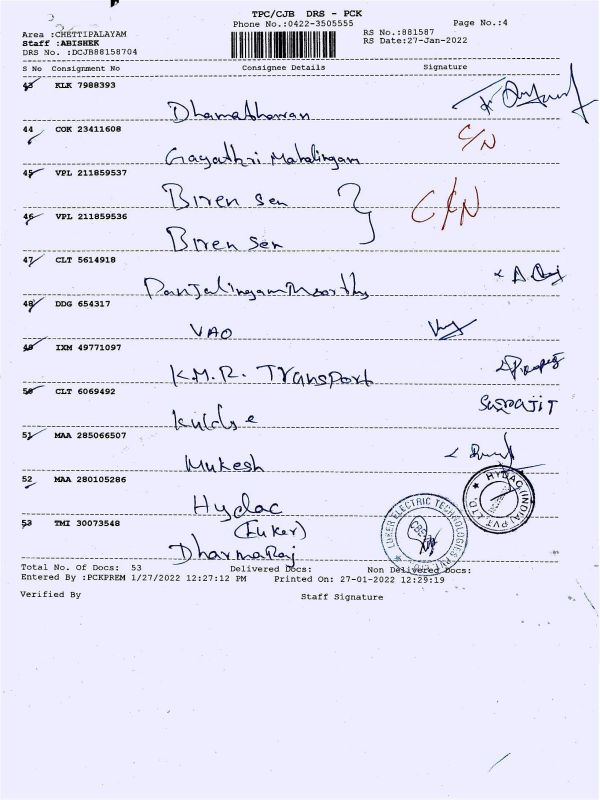 TPC/CJB DRS - PCK
Phone No.:0422-3505555
Page No.:4
Area :CHETTIPALAYAM
Staff :ABISHEK
DRS No. :DCJB88158704
RS No.:881587
RS Date:27-Jan-2022
S No Consignment No Consignee Details Signature
43 KLK 7988393
44 COK 23411608
C/N
Gayathri Mahalingam
45 VPL 211859537
Biren Sen
C/N
46 VPL 211859536
Biren Sen
47 CLT 5614918
48 DDG 654317
VAO
49 IXM 49771097
K.M.R. Transport
50 CLT 6069492
51 MAA 285066507
Mukesh
52 MAA 280105286
Hydac
HYDAC (INDIA) PVT. LTD.
53 TMI 30073548
(Luker)
LUKER ELECTRIC TECHNOLOGIES PVT. LTD.
DharmaRaj
Total No. Of Docs: 53 Delivered Docs: Non Delivered Docs:
Entered By :PCKPREM 1/27/2022 12:27:12 PM Printed On: 27-01-2022 12:29:19
Verified By Staff Signature